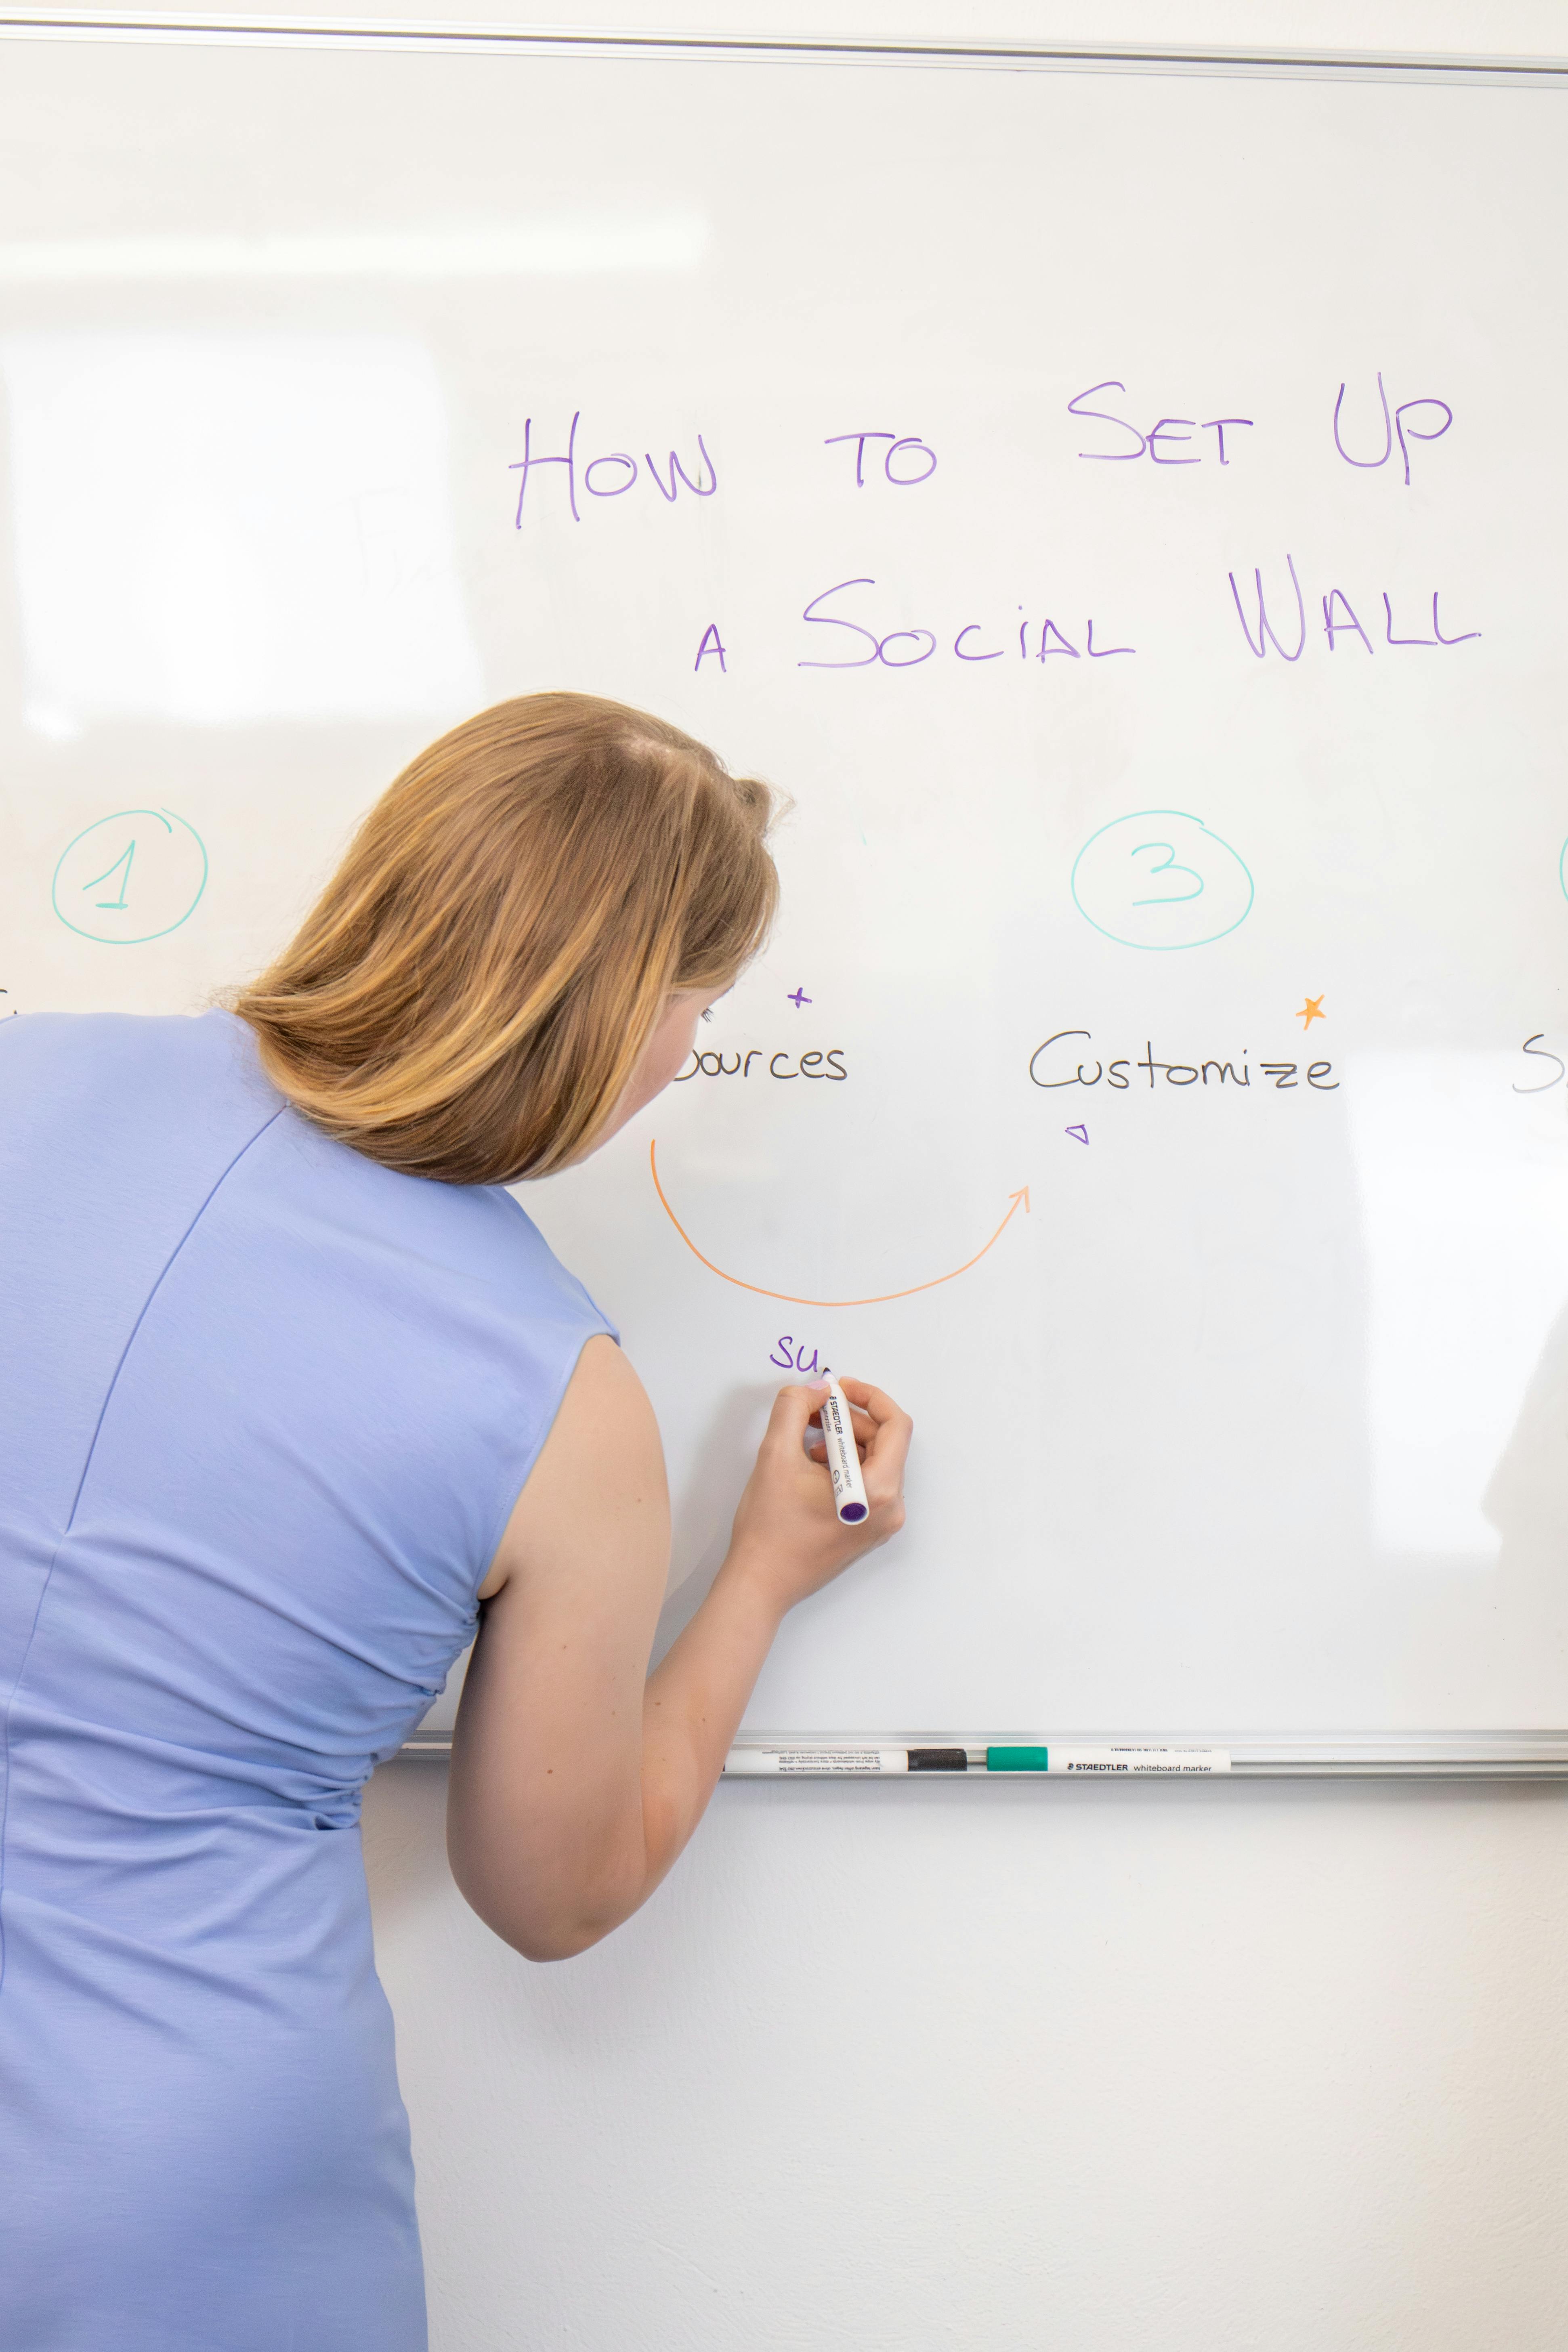 How to Set Up
a Social Wall
1 3
Sources Customize
su
STAEDTLER whiteboard marker
STAEDTLER whiteboard marker